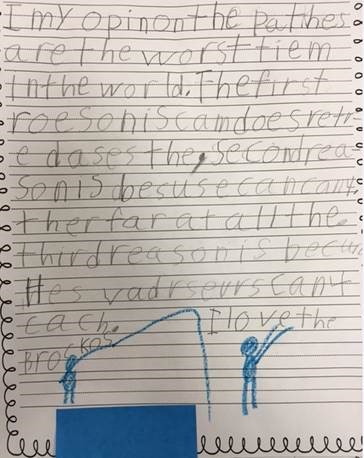 I my opinon the patihes
are the worst tiem
in the world. The first
roesonis cam does retr
e dases the, second rea
son is besuse ecan cany
ther far at all the
third reason is becu
Hes vadrseurs cant
cach. I love the
Broskos.